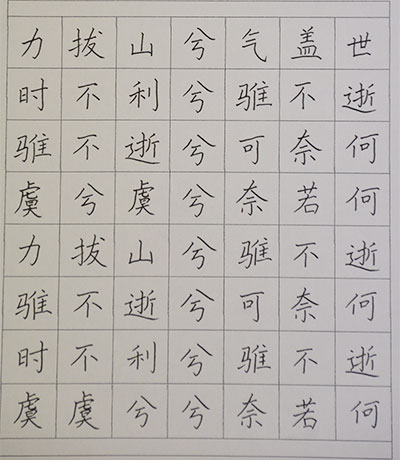 力拔山兮气盖世
时不利兮骓不逝
骓不逝兮可奈何
虞兮虞兮奈若何
力拔山兮骓不逝
骓不逝兮可奈何
时不利兮骓不逝
虞虞兮兮奈若何